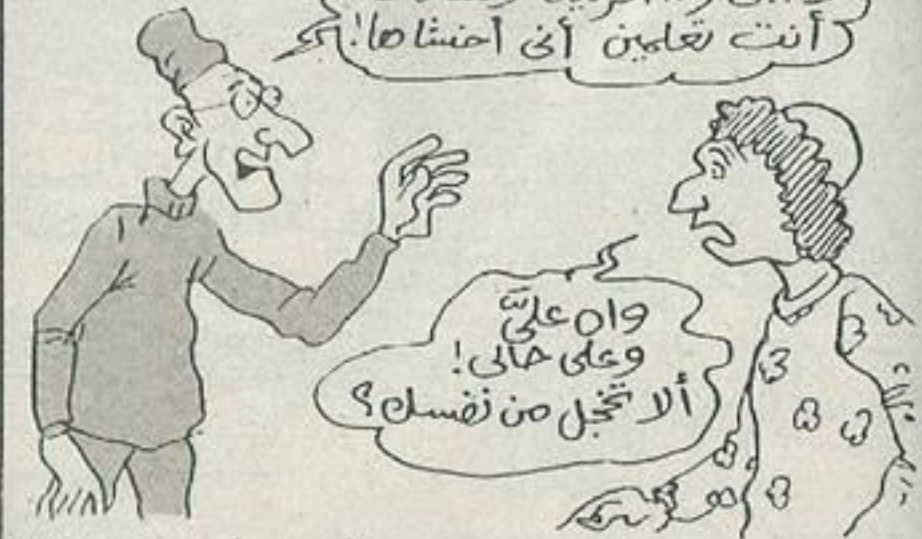 أنت تعلمين أنى أخشاها!
واه علىّ
وعلى حالى!
ألا تخجل من نفسك؟